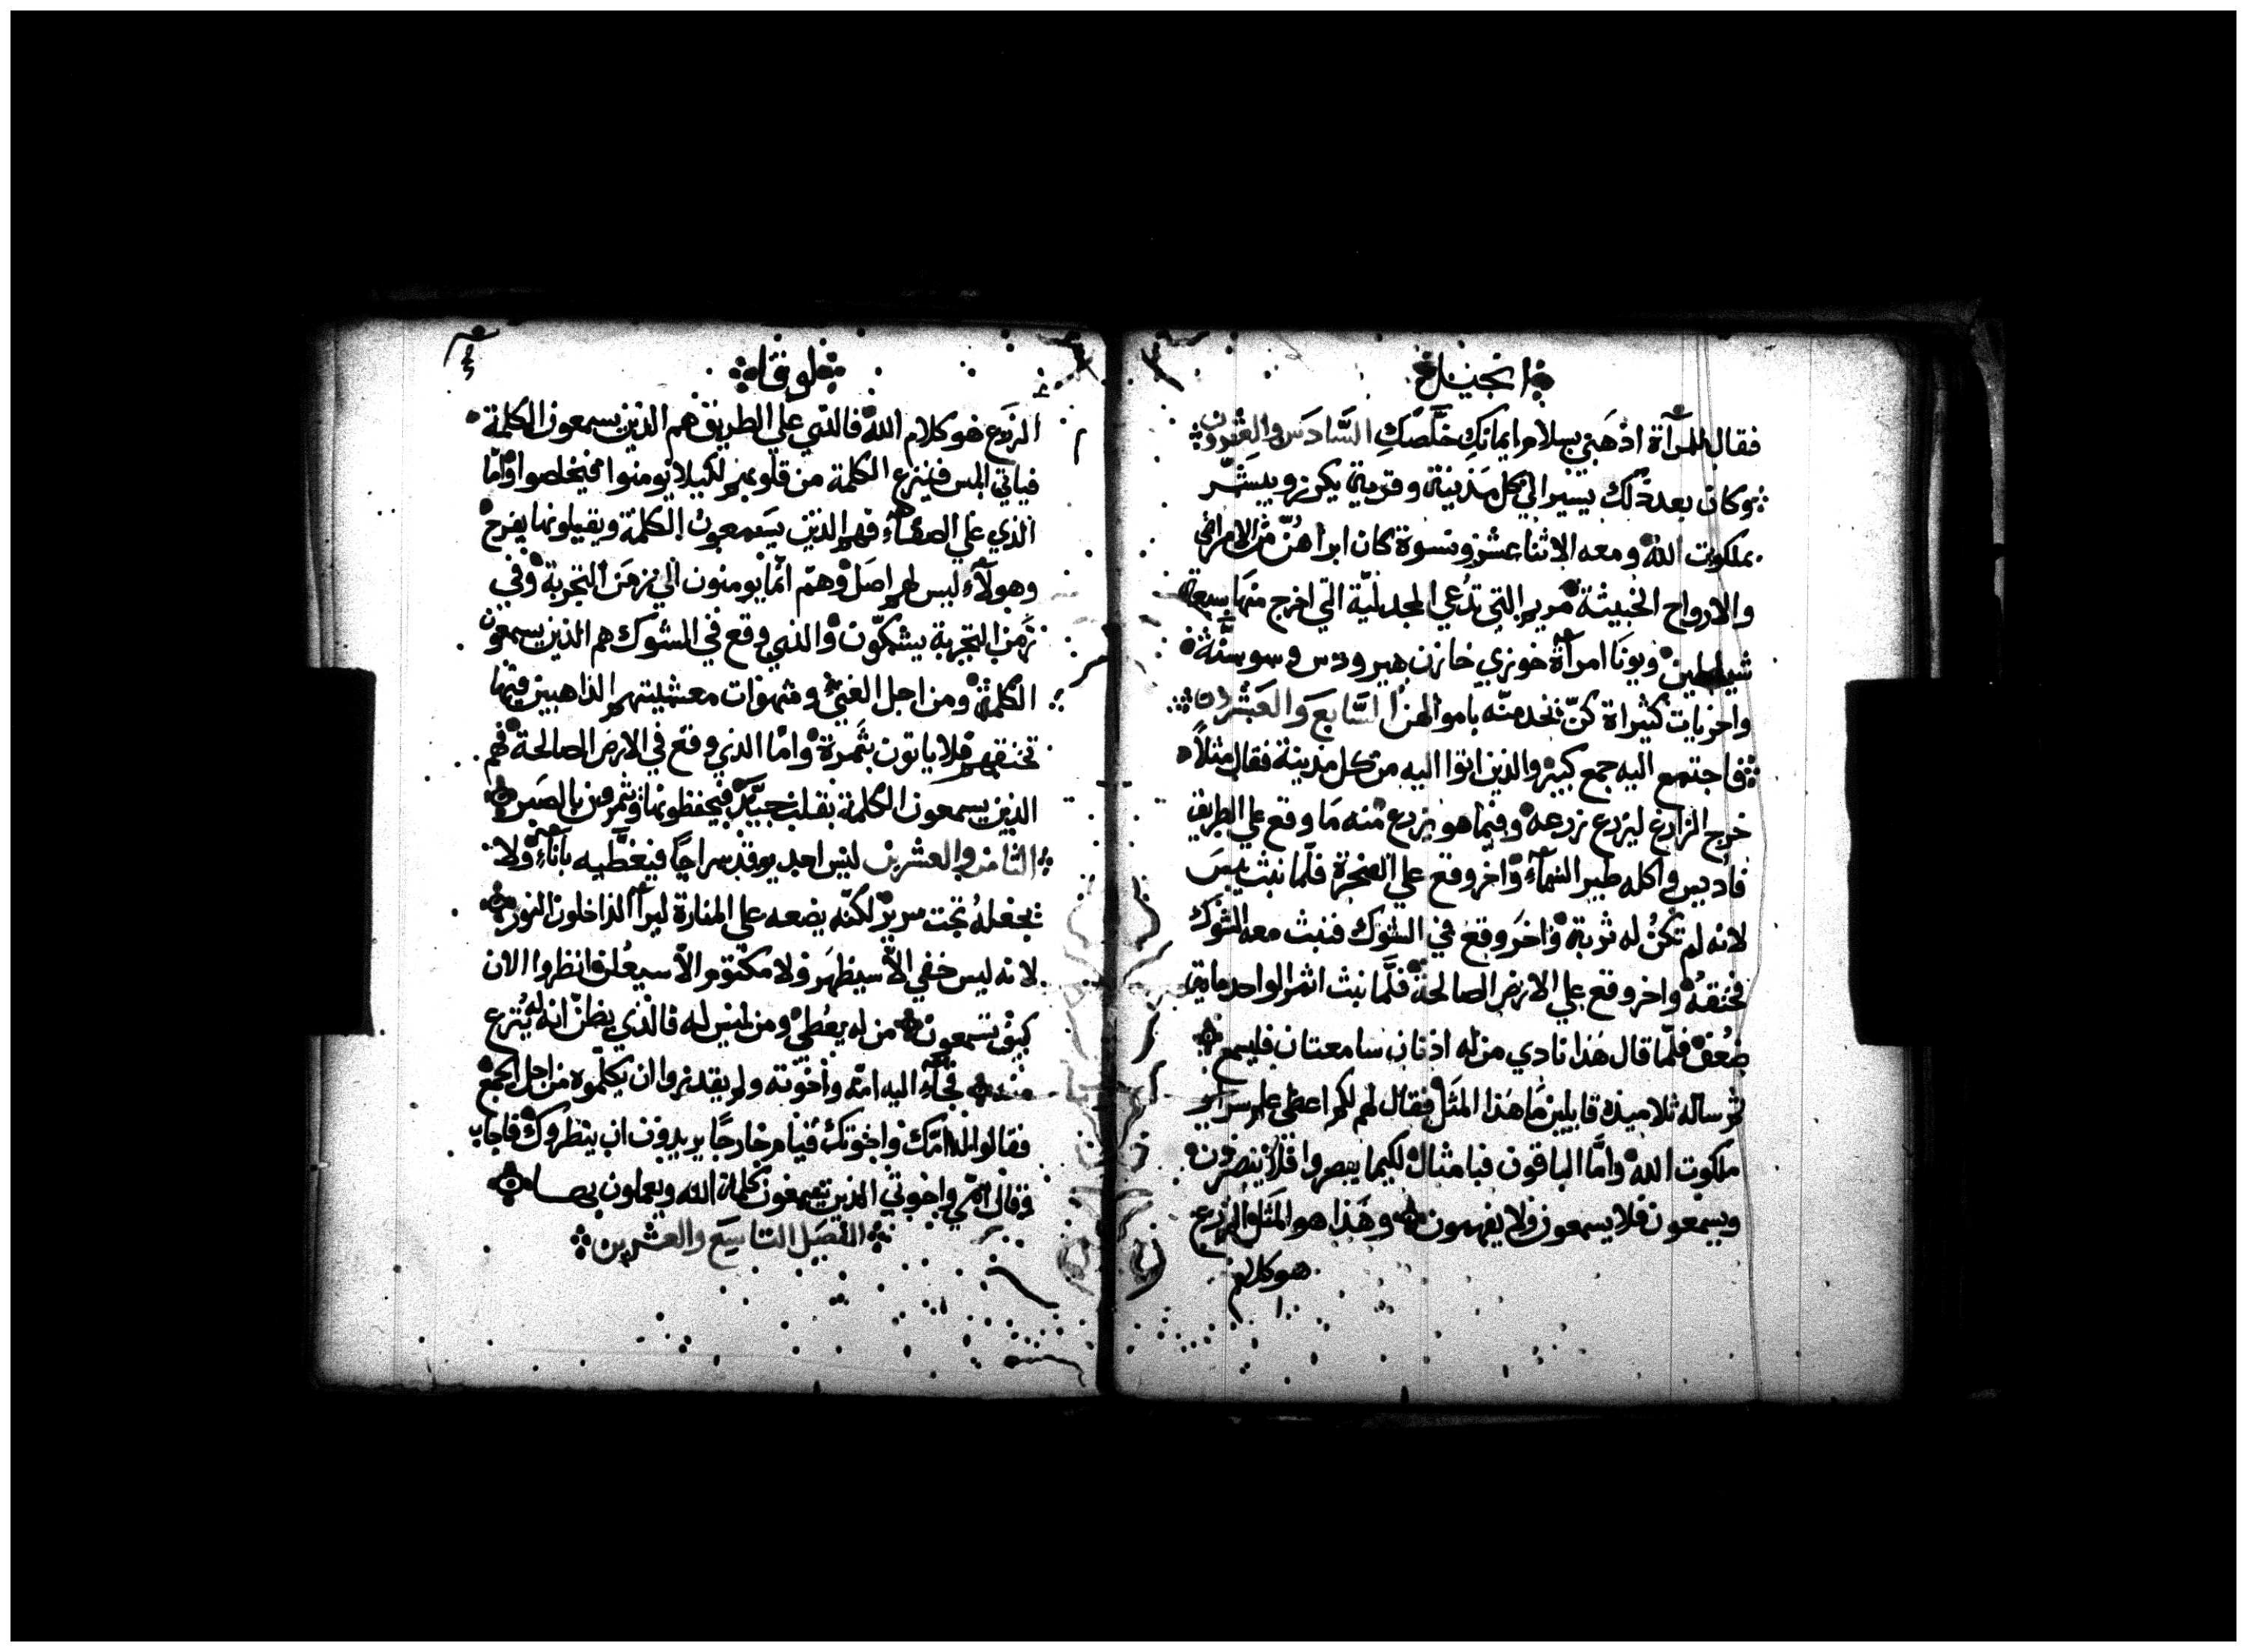 انجيل
فقال للمرآة اذهبي بسلام ايمانكِ خلّصكِ السَّادسَ والعِشرون
وكان بعد ذلك يسير الي كل مدينة وقرية يكرز ويبشّر
بملكوت الله ومعه الاثنا عشر ونسوة كان ابراهنّ من الامراض
والارواح الخبيثة مريم التي تُدعي المجدليّة التي اخرج منها سبعة
شياطين ويونَا امرآة خوزي خازن هيرودس وسوسنَّة
واخريات كثيراة كنّ يخدمنّه باموالهن السَّابعَ والعَشرون
فاجتمع اليه جمع كبير والذين اتوا اليه من كل مدينة فقال مثلاً
خرج الزارع ليزرع زرعه وفيما هو يزرع منه مَا وقع علي الطريق
فاديس واكله طير السَّمآء واخر وقع علي الصخرة فلمّا نبث يبسَ
لانه لم تكنُ له ثربة واخرَ وقع في الشوك فنبث معه الشوك
فخنقهُ واخر وقع علي الارض الصالحة فلمَّا نبث اثمر الواحد ماية
ضُعف فلمّا قال هَذا نادي من له اذنان سامعتان فليسمع
ثم ساله ثلاميذه قايلين مَا هَذا المثَل فقال لهم لكم اعطي علم سراير
ملكوت الله وامَّا الباقون فبامثال لكيما يبصروا فلا يبصرون
ويسمعون فلا يسمعون ولا يفهمون وهَذا هو المَثَل الزرع
هو كلام
لوقا
الزَرع هو كلام الله فالذي علي الطريق هم الذين يسمعون الكلمة
فياتي ابليس فينزع الكلمة من قلوبهم لكيلا يومنوا فيخلصوا وامّا
الذي علي الصفآء فهم الذين يسَمعون الكلمة ويقبلونها بفرح
وهولآء ليس لهم اصَل وهمّ انّما يومنون الي زمَن التجربة وفي
زَمن التجربة يشكّون والذي وقع في الشوك هم الذين يسمعون
الكلمة ومن اجل الغني وشهوَات معشيتهم الذاهبين فيها
تخنقهم فلا ياتون بثَمرة وامّا الذي وقع في الارض الصالحة فهم
الذين يسمعون الكلمة بقلب جيّد فيحفظونها ويثمرون بالصَبر
الثامن والعشرين ليس احد يوقد سراجًا فيغطّيه بانآء ولا
يجعلهُ تحت سرير لكنّه يضعه علي المنارة ليرآ الذاخلون النور
لانه ليس خفي الاّ سيظهَر ولا مكتوم الاّ سيعُلن فانظروا الان
كيف تسَمعون من له يعُطي ومن ليس له فالذي يظنّ انه له يُنزع
منه فجآء اليه امّه واخوته ولم يقدروا ان يكلّموه من اجل الجمع
فقالوا له امّك واخوتك قيام خارجًا يريدون ان ينظروك فاجاب
وقال امّي واخوتي الذين يسمعون كلمة الله ويعملون بها
الفصَل التاسِعَ والعشرين